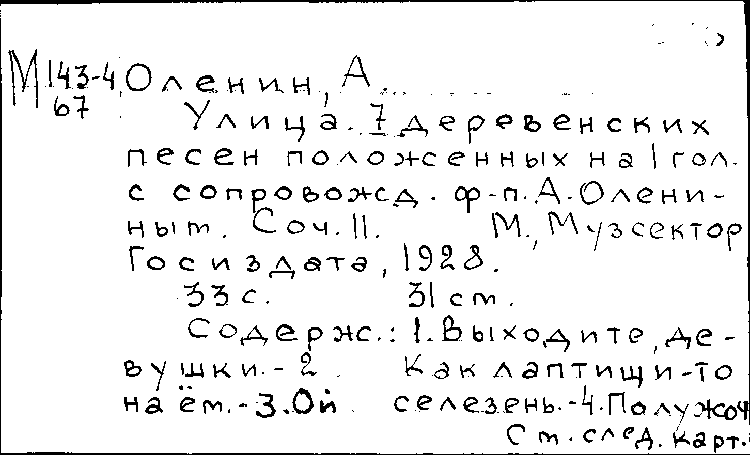 М 143-4 Оленин, А...
67 Улица. 7 деревенских
песен положенных на 1 гол.
с сопровожд. ф-п. А. Олени-
ным. Соч. 11. М., Музсектор
Госиздата, 1928.
33 с. 31 cm.
Содерж.: 1. Выходите, де-
вушки. - 2. Как лаптищи-то
на ём. - 3. Ой селезень. - 4. Полужоч
См. след. карт.